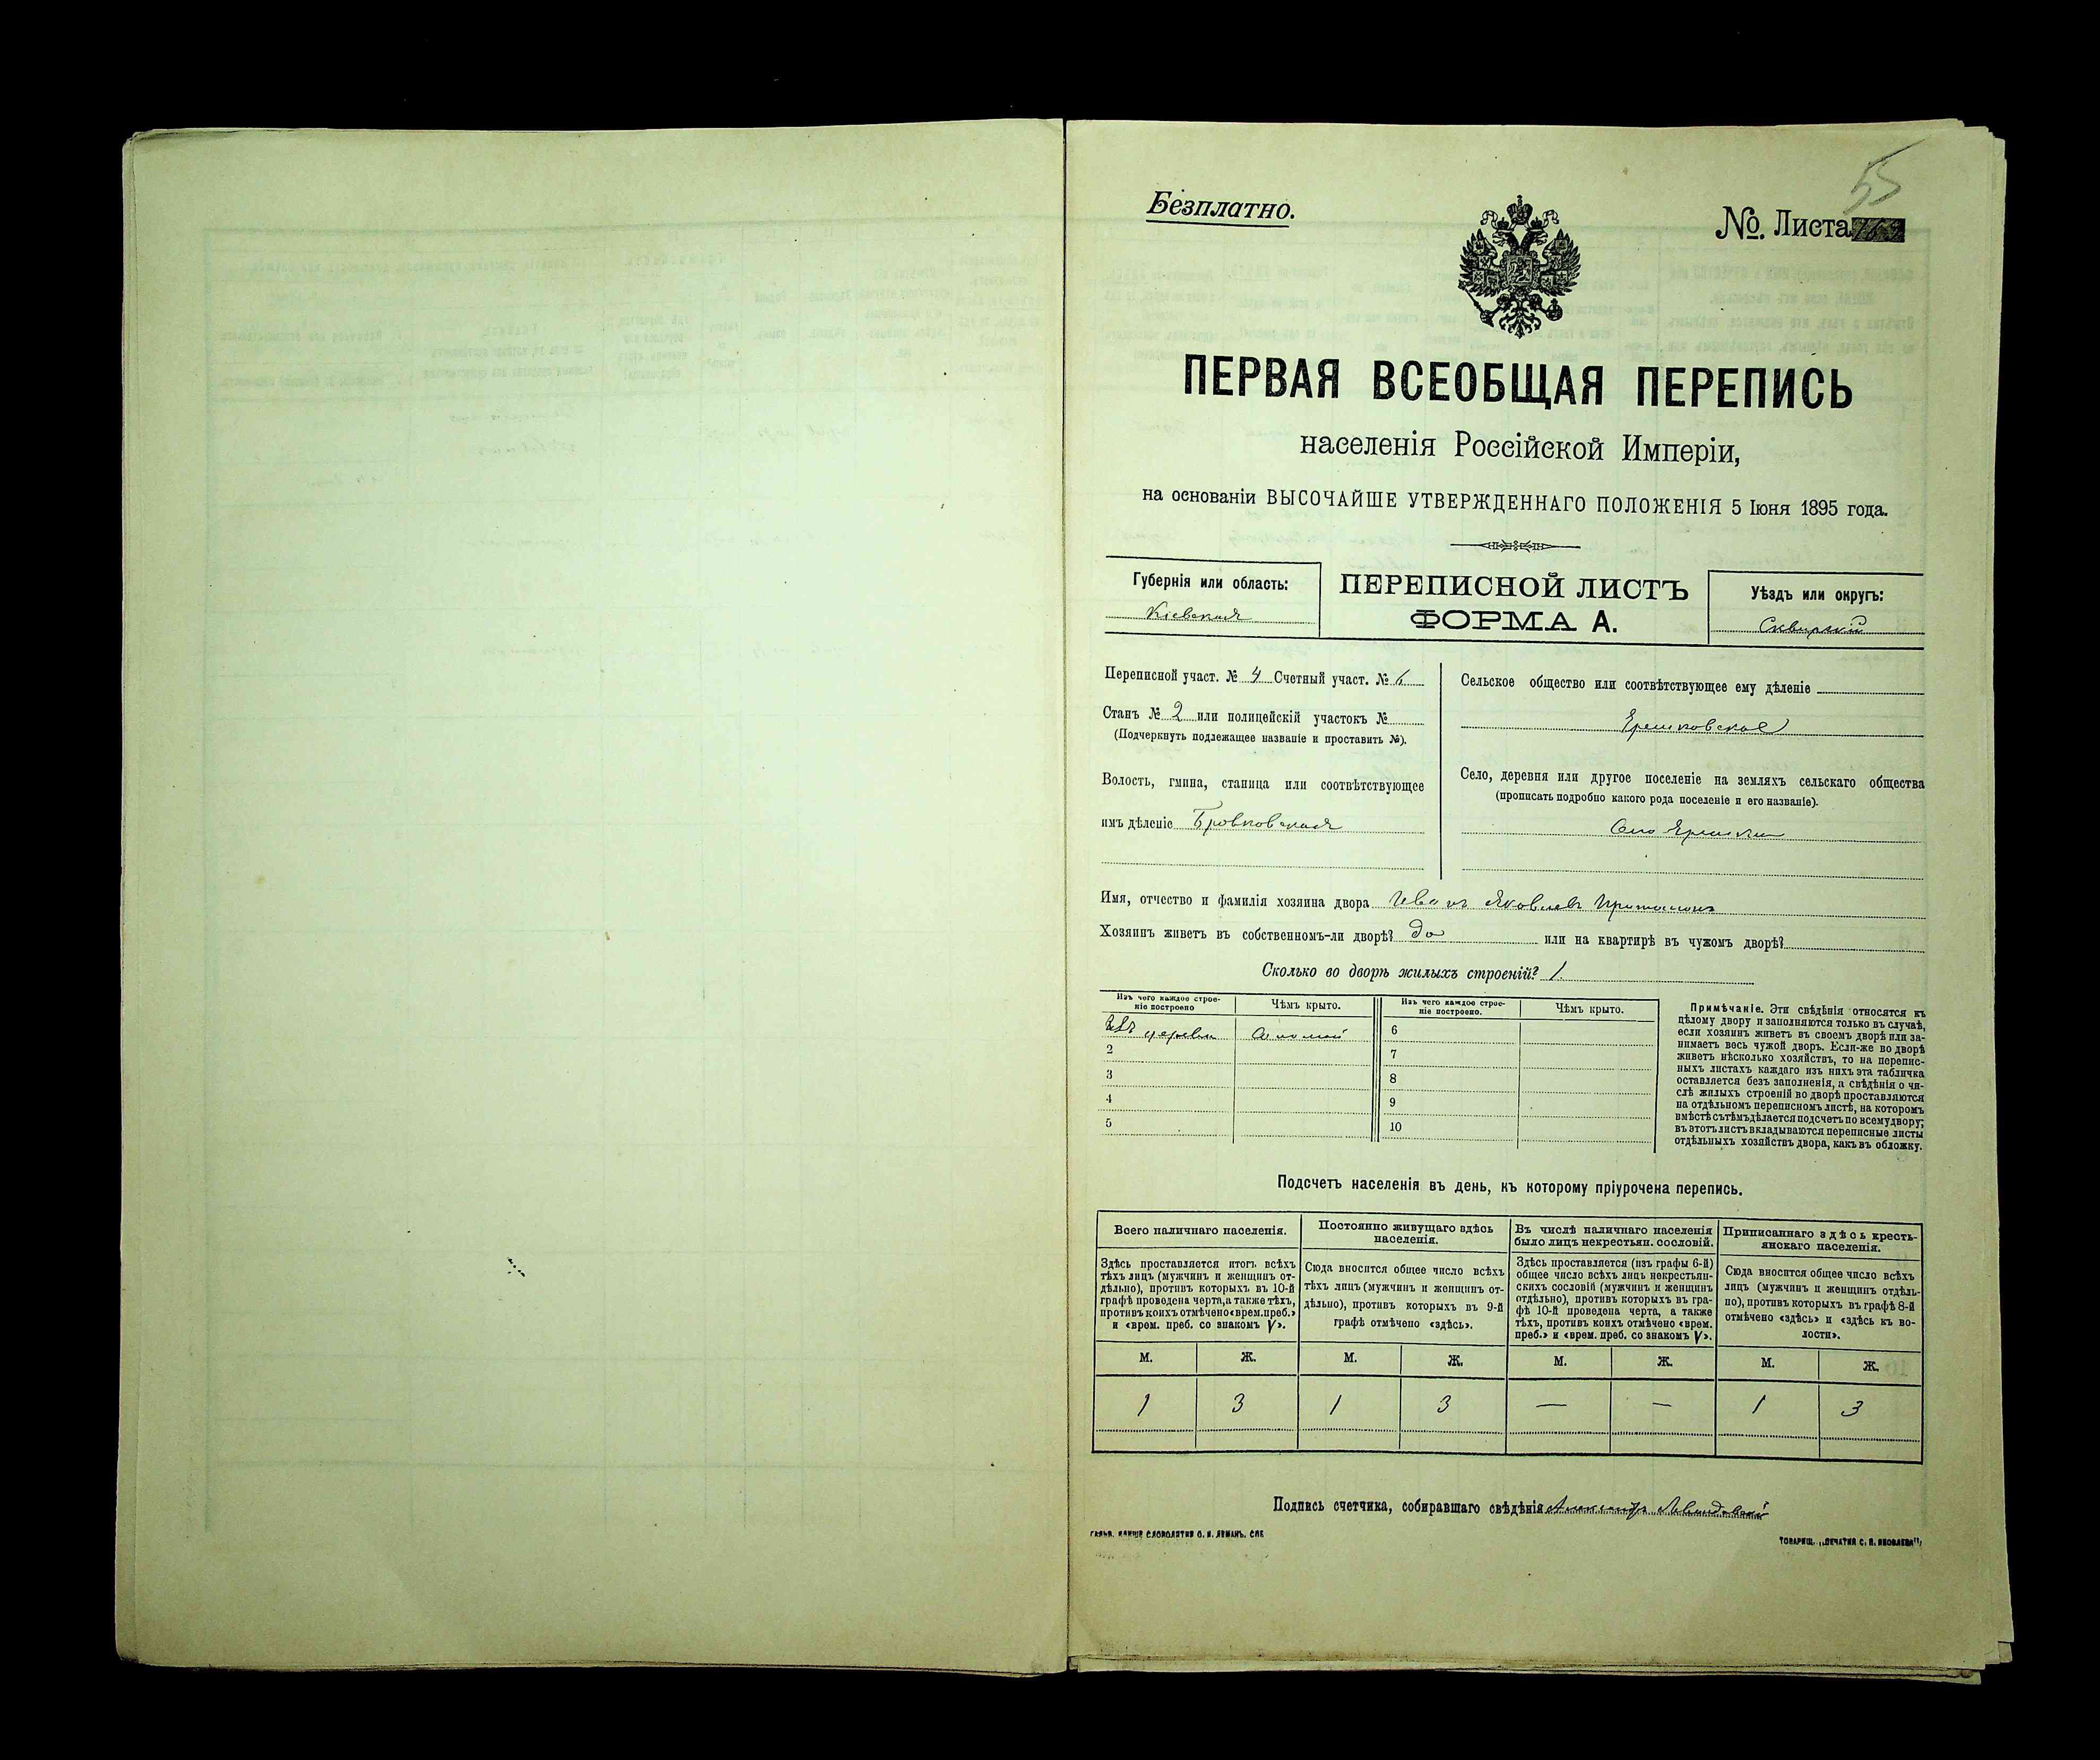 55
Безплатно.
№ Листа 169
ПЕРВАЯ ВСЕОБЩАЯ ПЕРЕПИСЬ
населенія Россійской Имперіи,
на основаніи ВЫСОЧАЙШЕ УТВЕРЖДЕННАГО ПОЛОЖЕНІЯ 5 Іюня 1895 года.
Губернія или область:
Кіевская
ПЕРЕПИСНОЙ ЛИСТЪ
ФОРМА А.
Уѣздъ или округъ:
Сквирскій
Переписной участ. № 4 Счетный участ. № 6
Станъ № 2 или полицейскій участокъ №
(Подчеркнуть подлежащее названіе и проставить №).
Волость, гмина, станица или соотвѣтствующее
имъ дѣленіе Бровковская
Сельское общество или соотвѣтствующее ему дѣленіе
Ярешковское
Село, деревня или другое поселеніе на земляхъ сельскаго общества
(прописать подробно какого рода поселеніе и его названіе).
Село Ярешки
Имя, отчество и фамилія хозяина двора Иванъ Яковлевъ
Хозяинъ живетъ въ собственномъ-ли дворѣ? да или на квартирѣ въ чужомъ дворѣ?
Сколько во дворѣ жилыхъ строеній? 1.
Изъ чего каждое строе-
ніе построено
Чѣмъ крыто.
Изъ чего каждое строе-
ніе построено.
Чѣмъ крыто.
Изъ дерева соломой 6
2 7
3 8
4 9
5 10
Примѣчаніе. Эти свѣдѣнія относятся къ
цѣлому двору и заполняются только въ случаѣ,
если хозяинъ живетъ въ своемъ дворѣ или за-
нимаетъ весь чужой дворъ. Если-же во дворѣ
живетъ нѣсколько хозяйствъ, то на перепис-
ныхъ листахъ каждаго изъ нихъ эта табличка
оставляется безъ заполненія, а свѣдѣнія о чи-
слѣ жилыхъ строеній во дворѣ проставляются
на отдѣльномъ переписномъ листѣ, на которомъ
вмѣстѣ съ тѣмъ дѣлается подсчетъ по всему двору;
въ этотъ листъ вкладываются переписные листы
отдѣльныхъ хозяйствъ двора, какъ въ обложку.
Подсчетъ населенія въ день, къ которому пріурочена перепись.
Всего наличнаго населенія.
Здѣсь проставляется итогъ всѣхъ
тѣхъ лицъ (мужчинъ и женщинъ от-
дѣльно), противъ которыхъ въ 10-й
графѣ проведена черта, а также тѣхъ,
противъ коихъ отмѣчено «врем. преб.»
и «врем. преб. со знакомъ V».
Постоянно живущаго здѣсь
населенія.
Сюда вносится общее число всѣхъ
тѣхъ лицъ (мужчинъ и женщинъ от-
дѣльно), противъ которыхъ въ 9-й
графѣ отмѣчено «здѣсь».
Въ числѣ наличнаго населенія
было лицъ некрестьян. сословій.
Здѣсь проставляется (изъ графы 6-й)
общее число всѣхъ лицъ некрестьян-
скихъ сословій (мужчинъ и женщинъ
отдѣльно), противъ которыхъ въ гра-
фѣ 10-й проведена черта, а также
тѣхъ, противъ коихъ отмѣчено «врем.
преб.» и «врем. преб. со знакомъ V».
Приписаннаго здѣсь кресть-
янскаго населенія.
Сюда вносится общее число всѣхъ
лицъ (мужчинъ и женщинъ отдѣль-
но), противъ которыхъ въ графѣ 8-й
отмѣчено «здѣсь» и «здѣсь къ во-
лости».
М. Ж. М. Ж. М. Ж. М. Ж.
1 3 1 3 — — 1 3
Подпись счетчика, собиравшаго свѣдѣнія Александръ Левандовскій
ГАЛЬВ. КЛИШЕ СЛОВОЛИТНИ О. И. ЛЕМАНЪ. СПБ
ТОВАРИЩ. „ПЕЧАТНЯ С. П. ЯКОВЛЕВА"